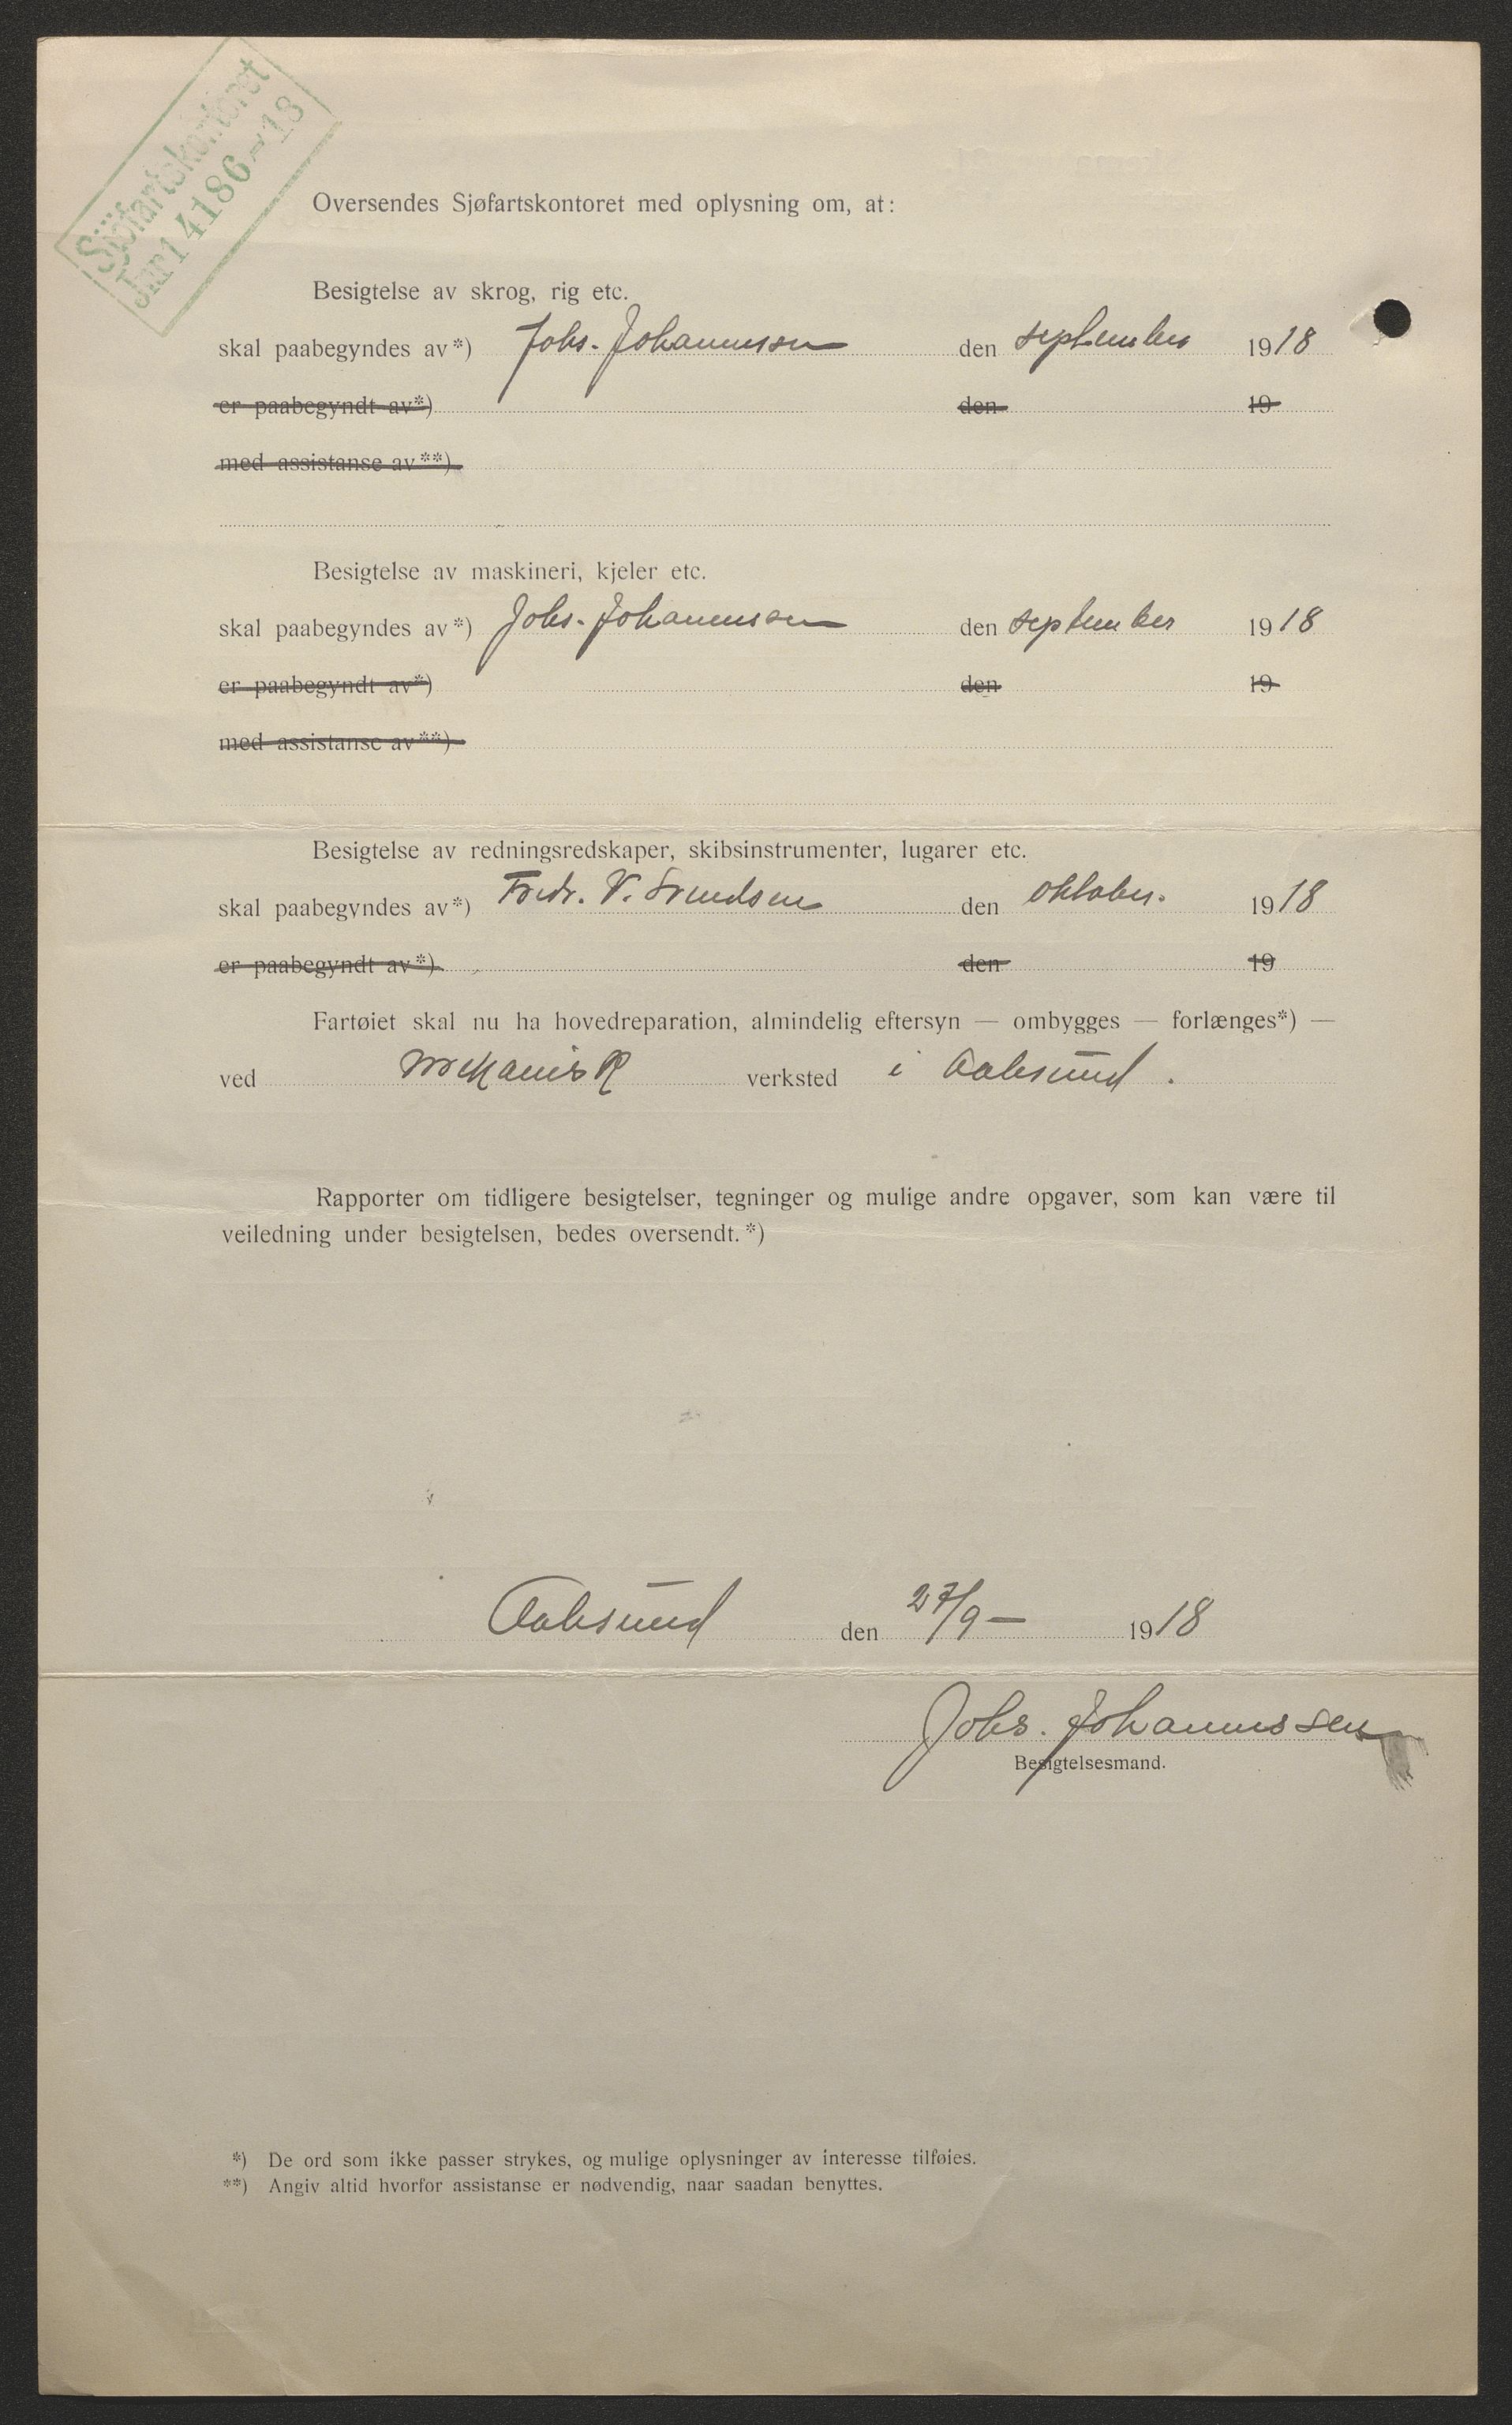 Sjöfartskontoret
Jnr 14186-18
Oversendes Sjøfartskontoret med oplysning om, at:
Besigtelse av skrog, rig etc.
skal paabegyndes av*) Johs. Johannessen den september 1918
er paabegyndt av*) den 19
med assistanse av**)
Besigtelse av maskineri, kjeler etc.
skal paabegyndes av*) Johs. Johannessen den september 1918
er paabegyndt av*) den 19
med assistanse av**)
Besigtelse av redningsredskaper, skibsinstrumenter, lugarer etc.
skal paabegyndes av*) Fredr. V. Svendsen den oktober. 1918
er paabegyndt av*) den 19
Fartøiet skal nu ha hovedreparation, almindelig eftersyn — ombygges — forlænges*) —
ved mekanisk verksted i Aalesund.
Rapporter om tidligere besigtelser, tegninger og mulige andre opgaver, som kan være til
veiledning under besigtelsen, bedes oversendt.*)
Aalesund den 27/9- 1918
Johs. Johannessen
Besigtelsesmand.
*) De ord som ikke passer strykes, og mulige oplysninger av interesse tilføies.
**) Angiv altid hvorfor assistanse er nødvendig, naar saadan benyttes.